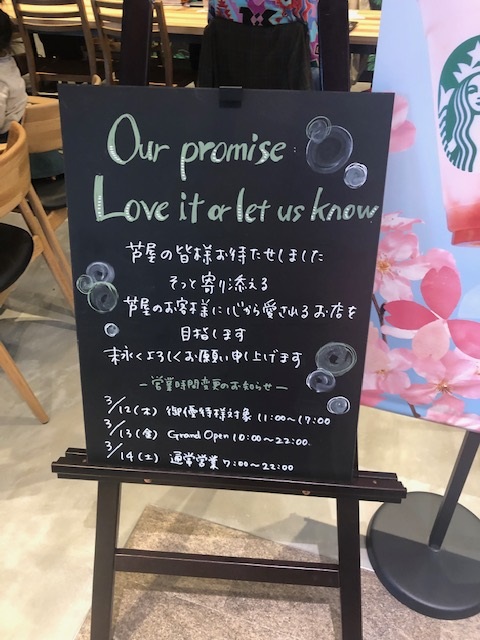 Our promise
Love it or let us know
芦屋の皆様お待たせしました
そっと寄り添える
芦屋のお客様に心から愛されるお店を
目指します
末永くよろしくお願い申し上げます
ー営業時間変更のお知らせー
3/12(木) 御優待様対象 11:00〜17:00
3/13(金) Grand Open 10:00〜22:00.
3/14(土) 通常営業 7:00〜22:00